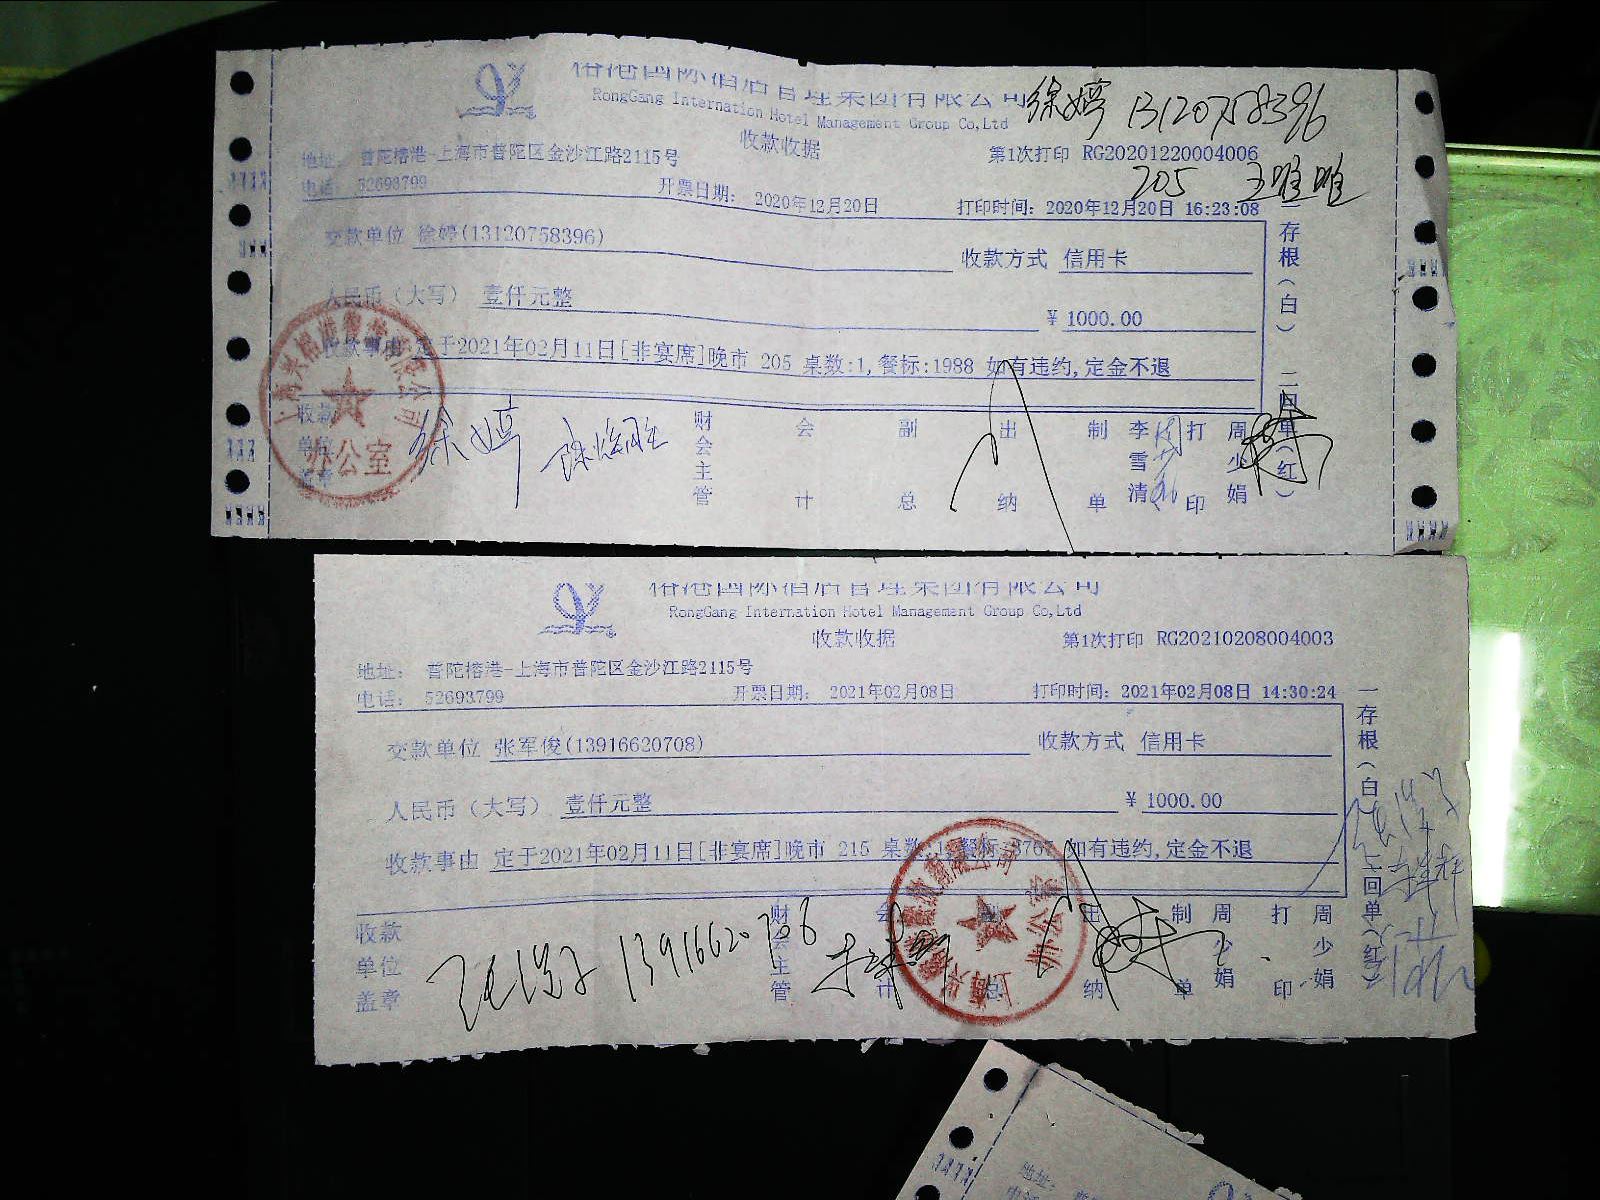 榕港国际酒店管理集团有限公司
RongGang Internation Hotel Management Group Co,Ltd
徐婷 13120758396
收款收据
第1次打印 RG20201220004006
地址: 普陀榕港-上海市普陀区金沙江路2115号
205 王唯唯
电话: 52693799
开票日期: 2020年12月20日
打印时间: 2020年12月20日 16:23:08
交款单位 徐婷(13120758396)
收款方式 信用卡
人民币(大写) 壹仟元整
¥ 1000.00
收款事由 定于2021年02月11日[非宴席]晚市 205 桌数:1,餐标:1988 如有违约,定金不退
一存根(白) 二回单(红)
收款单位盖章
徐婷
财会主管 会计 副总 出纳 制单 李雪清 打印 周少娟
办公室
榕港国际酒店管理集团有限公司
RongGang Internation Hotel Management Group Co,Ltd
收款收据
第1次打印 RG20210208004003
地址: 普陀榕港-上海市普陀区金沙江路2115号
电话: 52693799
开票日期: 2021年02月08日
打印时间: 2021年02月08日 14:30:24
交款单位 张军俊(13916620708)
收款方式 信用卡
人民币(大写) 壹仟元整
¥ 1000.00
收款事由 定于2021年02月11日[非宴席]晚市 215 桌数:1,餐标:3767 如有违约,定金不退
一存根(白) 二回单(红)
收款单位盖章
13916620708
财会主管 会计 副总 出纳 制单 周少娟 打印 周少娟
办公室
地址: